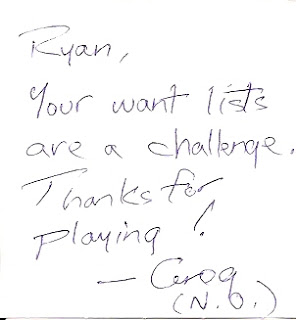 Ryan,
Your want lists
are a challenge.
Thanks for
playing!
— Groq
(N.O.)